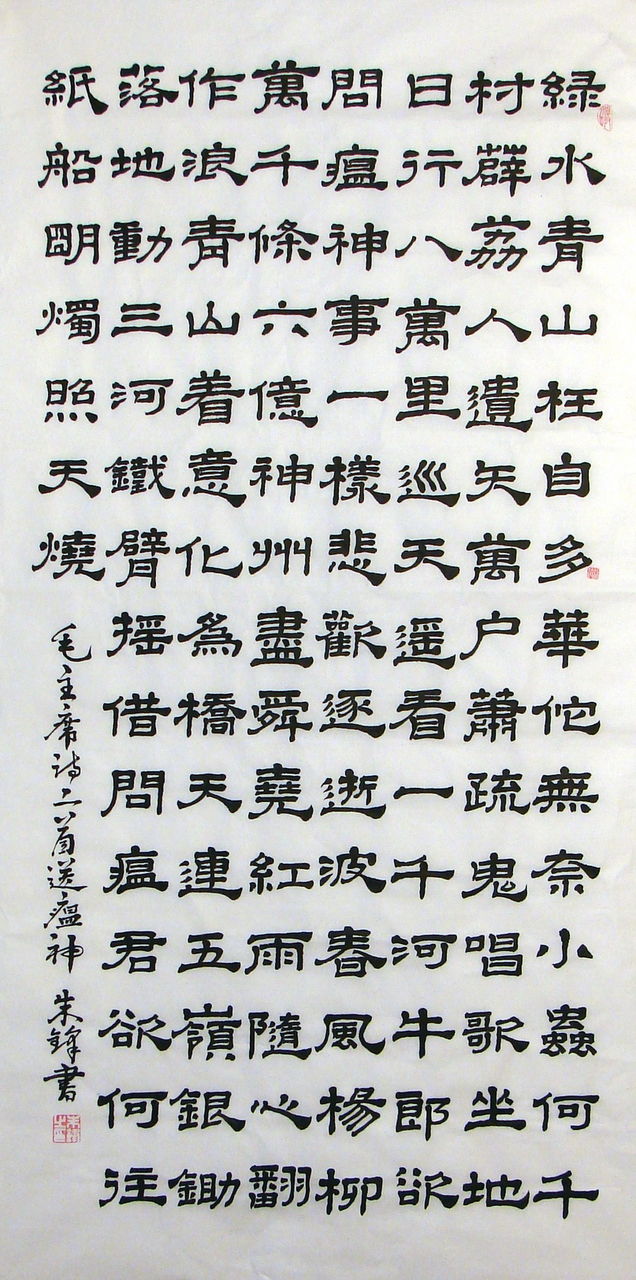 緑水青山枉自多華佗無奈小蟲何千
材薜荔人遺矢萬户蕭疏鬼唱歌坐地
日行八萬里巡天遥看一千河牛郎欲
問瘟神事一樣悲歡逐逝波春風楊柳
萬千條六億神州盡舜堯紅雨隨心翻
作浪青山着意化為橋天連五嶺銀鋤
落地動三河鐵臂摇借問瘟君欲何往
紙船朙燭照天燒
毛主席詩二首送瘟神 朱鋒書